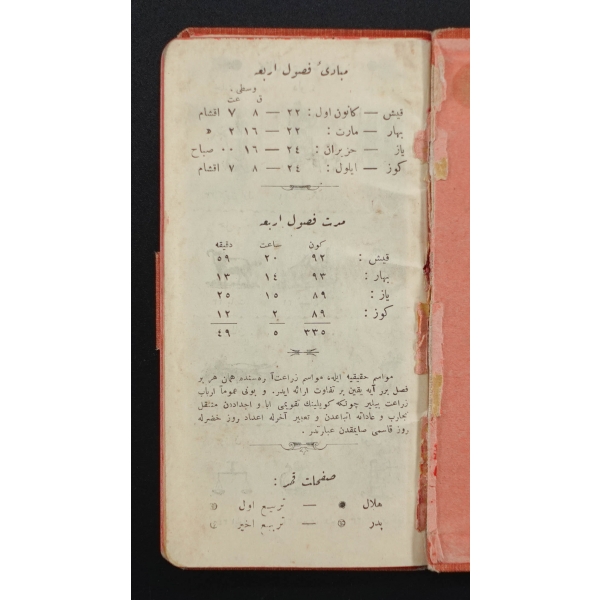 مبادئ فصول اربعه
وسطى
ق عت
قيش — كانون اول : ٢٢ — ٨ ٧ اقشام
بهار — مارت : ٢٢ — ١٦ ٢ »
ياز — حزيران : ٢٤ — ١٦ ٠٠ صباح
كوز — ايلول : ٢٤ — ٨ ٧ اقشام
مدت فصول اربعه
كون ساعت دقيقه
قيش : ٩٢ ٢٠ ٥٩
بهار : ٩٣ ١٤ ١٣
ياز : ٨٩ ١٥ ٢٥
كوز : ٨٩ ٢ ١٢
٣٣٥ ٥ ٤٩
مواسم حقيقيه ايله، مواسم زراعت آره‌سنده همان هر بر
فصل برر آيه يقين بر تفاوت ارائه ايدر. و بونى عموماً ارباب
زراعت بيلير چونكه كويلينك تقويمى ابا و اجداددن منتقل
تجارب و عاداته اتباعدن و تعبير آخرله اعداد روز خضرله
روز قاسمى صايمقدن عبارتدر .
صفحات قمر :
هلال — تربيع اول
بدر — تربيع اخير